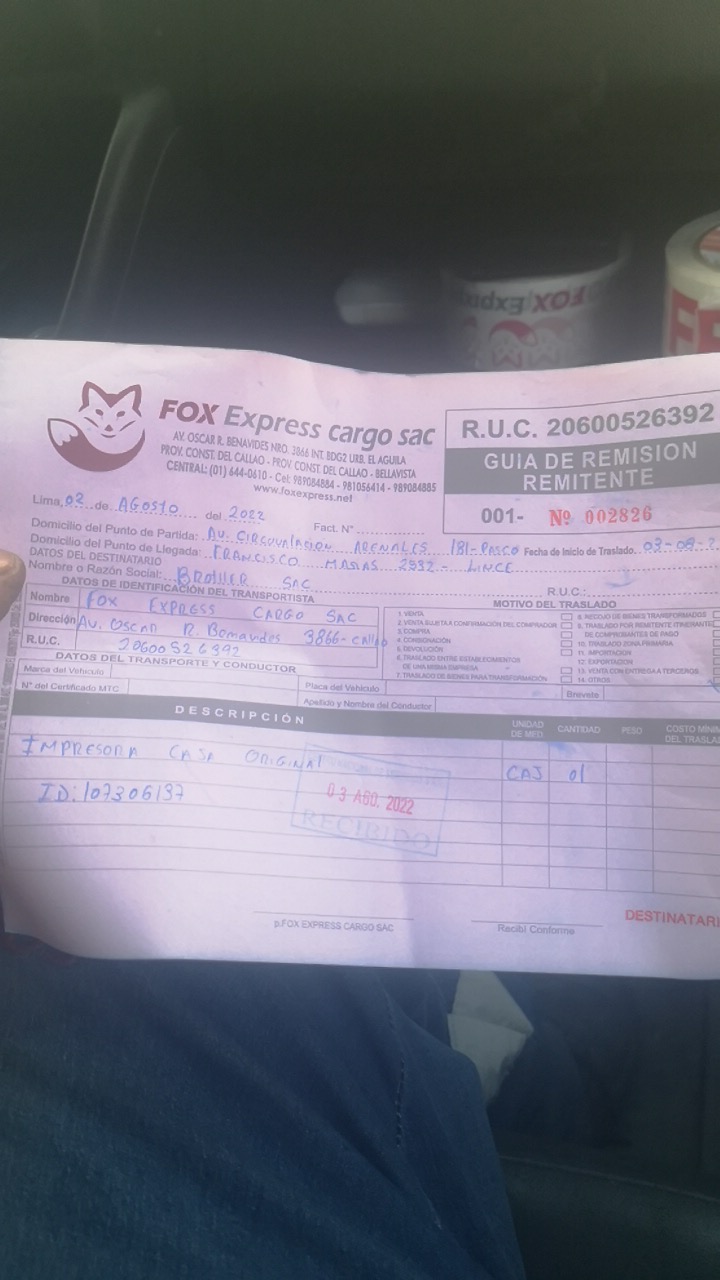 FOX Express cargo sac
AV. OSCAR R. BENAVIDES NRO. 3866 INT. BDG2 URB. EL AGUILA
PROV. CONST. DEL CALLAO - PROV CONST. DEL CALLAO - BELLAVISTA
CENTRAL: (01) 644-0610 - Cel: 989084884 - 981056414 - 989084885
www.foxexpress.net
R.U.C. 20600526392
GUIA DE REMISION
REMITENTE
001- Nº 002826
Lima, 02 de AGOSTO del 2022 Fact. N°
Domicilio del Punto de Partida: AV. CIRCUVALACION ARENALES 181-PASCO Fecha de Inicio de Traslado. 03-08-2
Domicilio del Punto de Llegada: FRANCISCO MASIAS 2932 - LINCE
DATOS DEL DESTINATARIO
Nombre o Razón Social: SAC R.U.C.:
DATOS DE IDENTIFICACIÓN DEL TRANSPORTISTA
Nombre FOX EXPRESS CARGO SAC
Dirección Av. OSCAR R. Bemavides 3866- CAllao
R.U.C. 20600526392
MOTIVO DEL TRASLADO
1. VENTA
2. VENTA SUJETA A CONFIRMACIÓN DEL COMPRADOR
3. COMPRA
4. CONSIGNACIÓN
5. DEVOLUCIÓN
6. TRASLADO ENTRE ESTABLECIMIENTOS
DE UNA MISMA EMPRESA
7. TRASLADO DE BIENES PARA TRANSFORMACIÓN
8. RECOJO DE BIENES TRANSFORMADOS
9. TRASLADO POR REMITENTE ITINERANTE
DE COMPROBANTES DE PAGO
10. TRASLADO ZONA PRIMARIA
11. IMPORTACION
12. EXPORTACION
13. VENTA CON ENTREGA A TERCEROS
14. OTROS
DATOS DEL TRANSPORTE Y CONDUCTOR
Marca del Vehículo
Placa del Vehículo
Brevete
N° del Certificado MTC
Apellido y Nombre del Conductor
DESCRIPCIÓN UNIDAD DE MED. CANTIDAD PESO COSTO MÍNI
DEL TRASLA
IMPRESORA CASA ORIGINAL CAJ 01
ID: 107306137
03 AGO. 2022
RECIBIDO
p.FOX EXPRESS CARGO SAC
Recibí Conforme
DESTINATARI